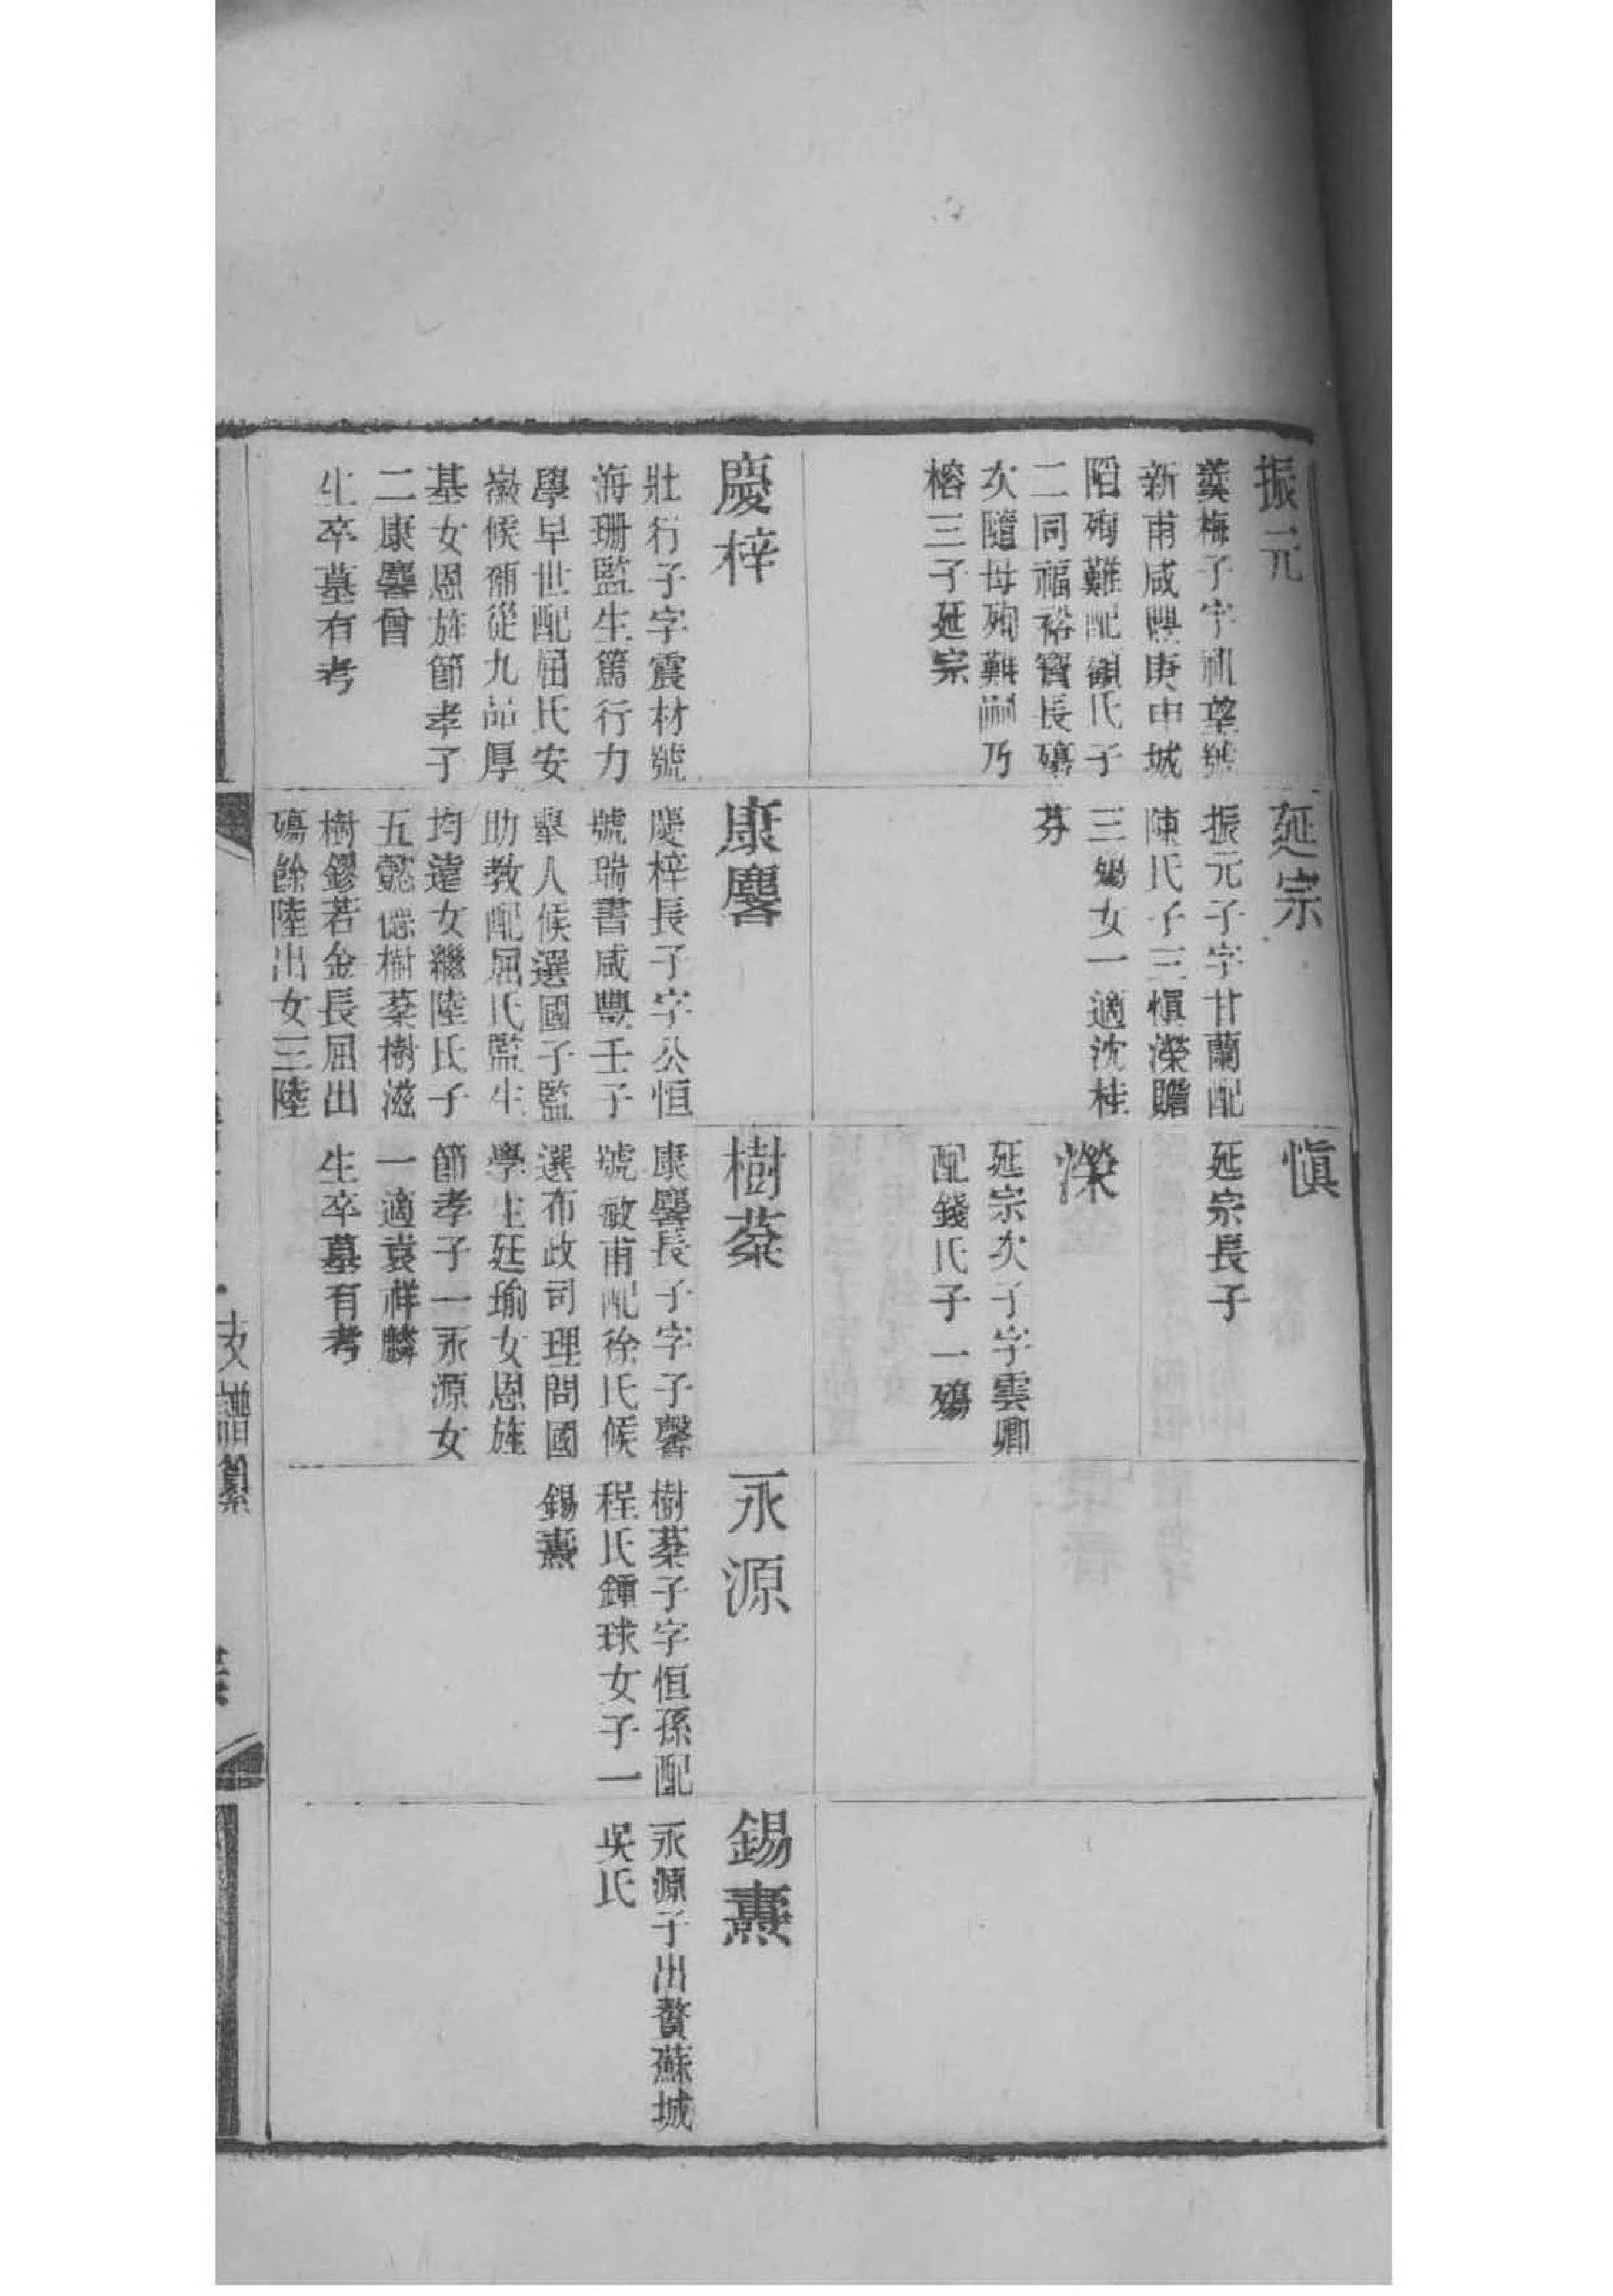 振元
羹梅子字 望號
新甫咸豐庚申城
陷殉難配顧氏子
二同福裕寶長殤
次隨母殉難嗣乃
榕三子延宗
延宗
振元子字甘蘭配
陳氏子三慎濼贍
三殤女一適沈桂
芬
慎
延宗長子
濼
延宗次子字雲卿
配錢氏子一殤
慶梓
壯行子字震材號
海珊監生篤行力
學早世配屈氏安
徽候補從九品厚
基女恩旌節孝子
二康謩曾
生卒墓有考
康
慶梓長子字公恒
號瑞書咸豐壬子
舉人候選國子監
助教配屈氏監生
均遠女繼陸氏子
五懿 樹棻樹滋
樹鏐若金長屈出
殤餘陸出女三陸
樹棻
康 長子字子馨
號敏甫配徐氏候
選布政司理問國
學生廷瑜女恩旌
節孝子一永源女
一適袁祥麟
生卒墓有考
永源
樹棻子字恒孫配
程氏鍾球女子一
錫燾
錫燾
永源子出贅蘇城
吳氏
支譜纂